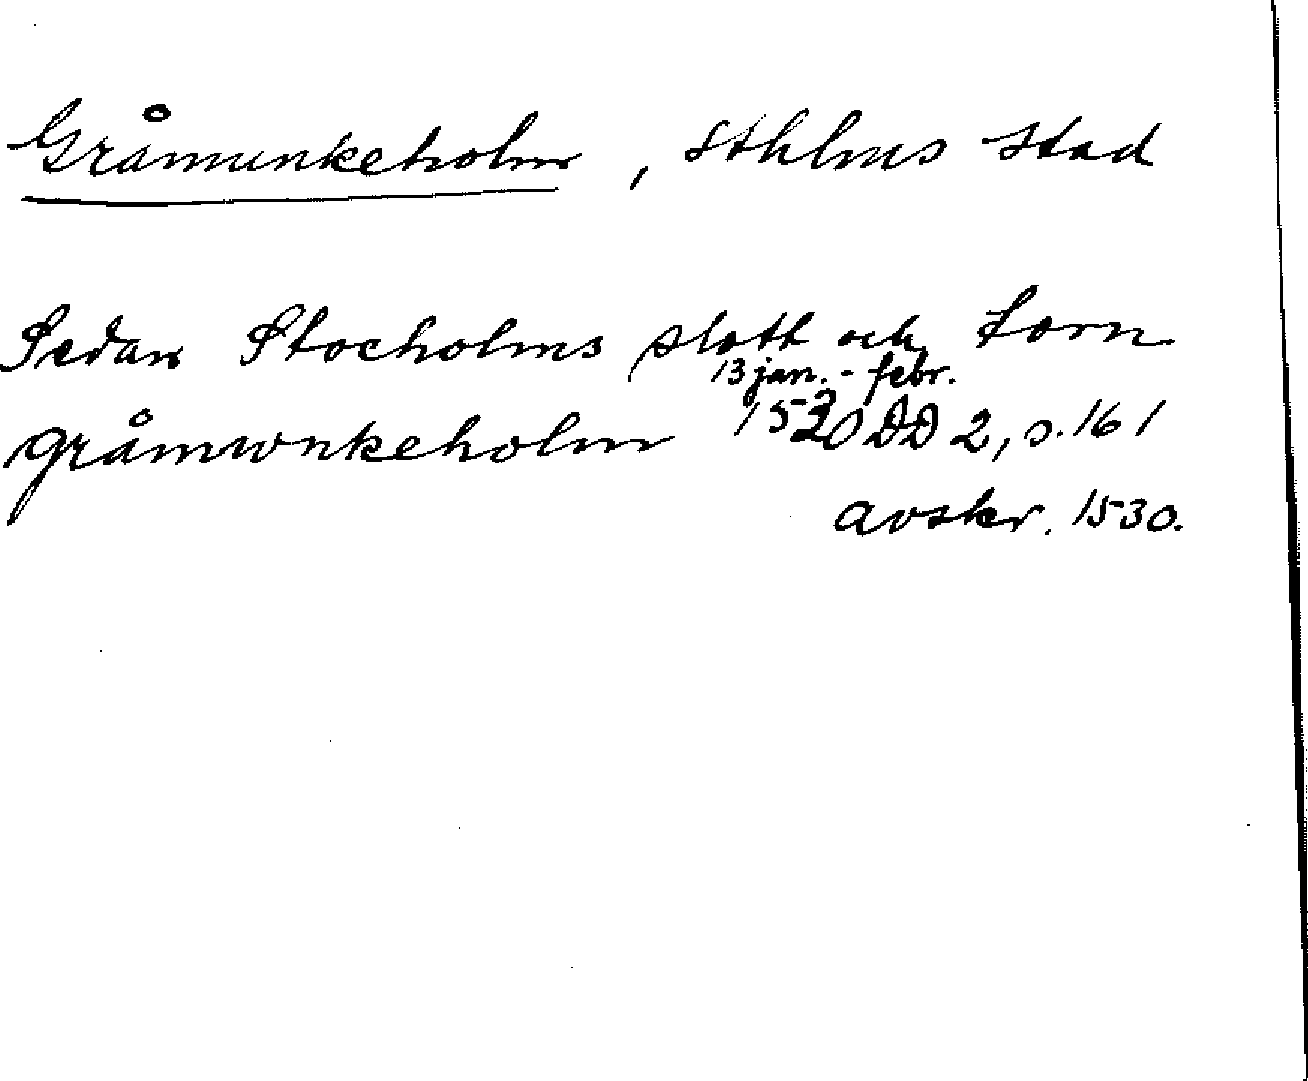 Gråmunkeholm, Sthlms stad
Sedan Stocholms slott och torn
13 jan. - febr.
gråmwnkeholm 1530 DD 2, s. 161
avskr. 1530.